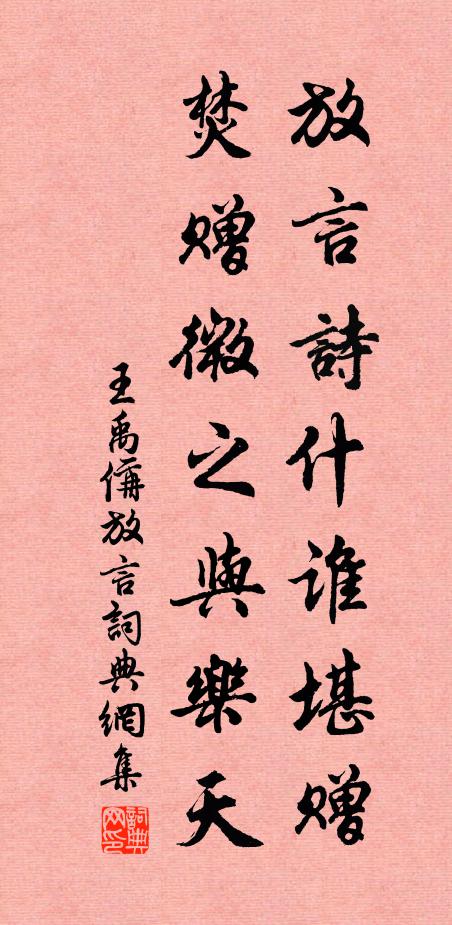 放言詩什誰堪贈
焚贈微之與樂天
王禹偁放言詞典網集
詞典网印